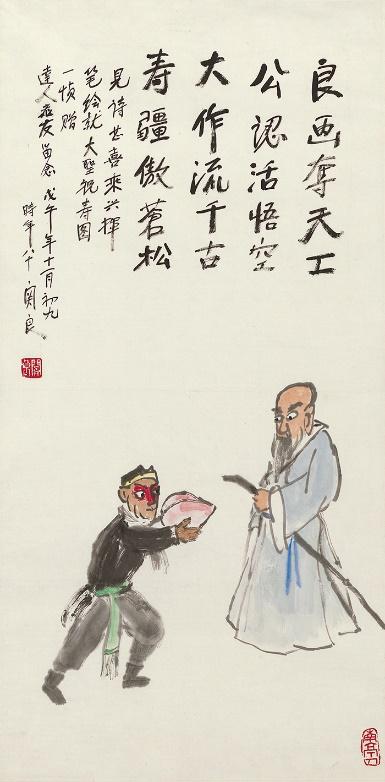 良画夺天工
公認活悟空
大作流千古
寿疆傲苍松
見诗甚喜乘兴挥
笔绘就大聖祝寿图
一帧赠
達人友留念 戊午年十一月初九
時年八十 関良